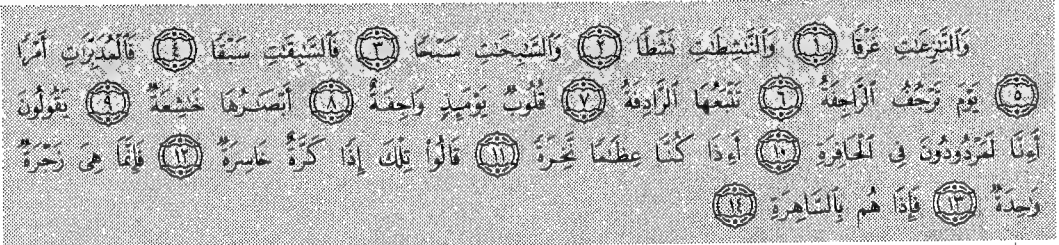 وَٱلنَّٰزِعَٰتِ غَرْقًا ١ وَٱلنَّٰشِطَٰتِ نَشْطًا ٢ وَٱلسَّٰبِحَٰتِ سَبْحًا ٣ فَٱلسَّٰبِقَٰتِ سَبْقًا ٤ فَٱلْمُدَبِّرَٰتِ أَمْرًا
٥ يَوْمَ تَرْجُفُ ٱلرَّاجِفَةُ ٦ تَتْبَعُهَا ٱلرَّادِفَةُ ٧ قُلُوبٌ يَوْمَئِذٍ وَاجِفَةٌ ٨ أَبْصَٰرُهَا خَٰشِعَةٌ ٩ يَقُولُونَ
أَءِنَّا لَمَرْدُودُونَ فِى ٱلْحَافِرَةِ ١٠ أَءِذَا كُنَّا عِظَٰمًا نَّخِرَةً ١١ قَالُوا۟ تِلْكَ إِذًا كَرَّةٌ خَاسِرَةٌ ١٢ فَإِنَّمَا هِىَ زَجْرَةٌ
وَٰحِدَةٌ ١٣ فَإِذَا هُم بِٱلسَّاهِرَةِ ١٤